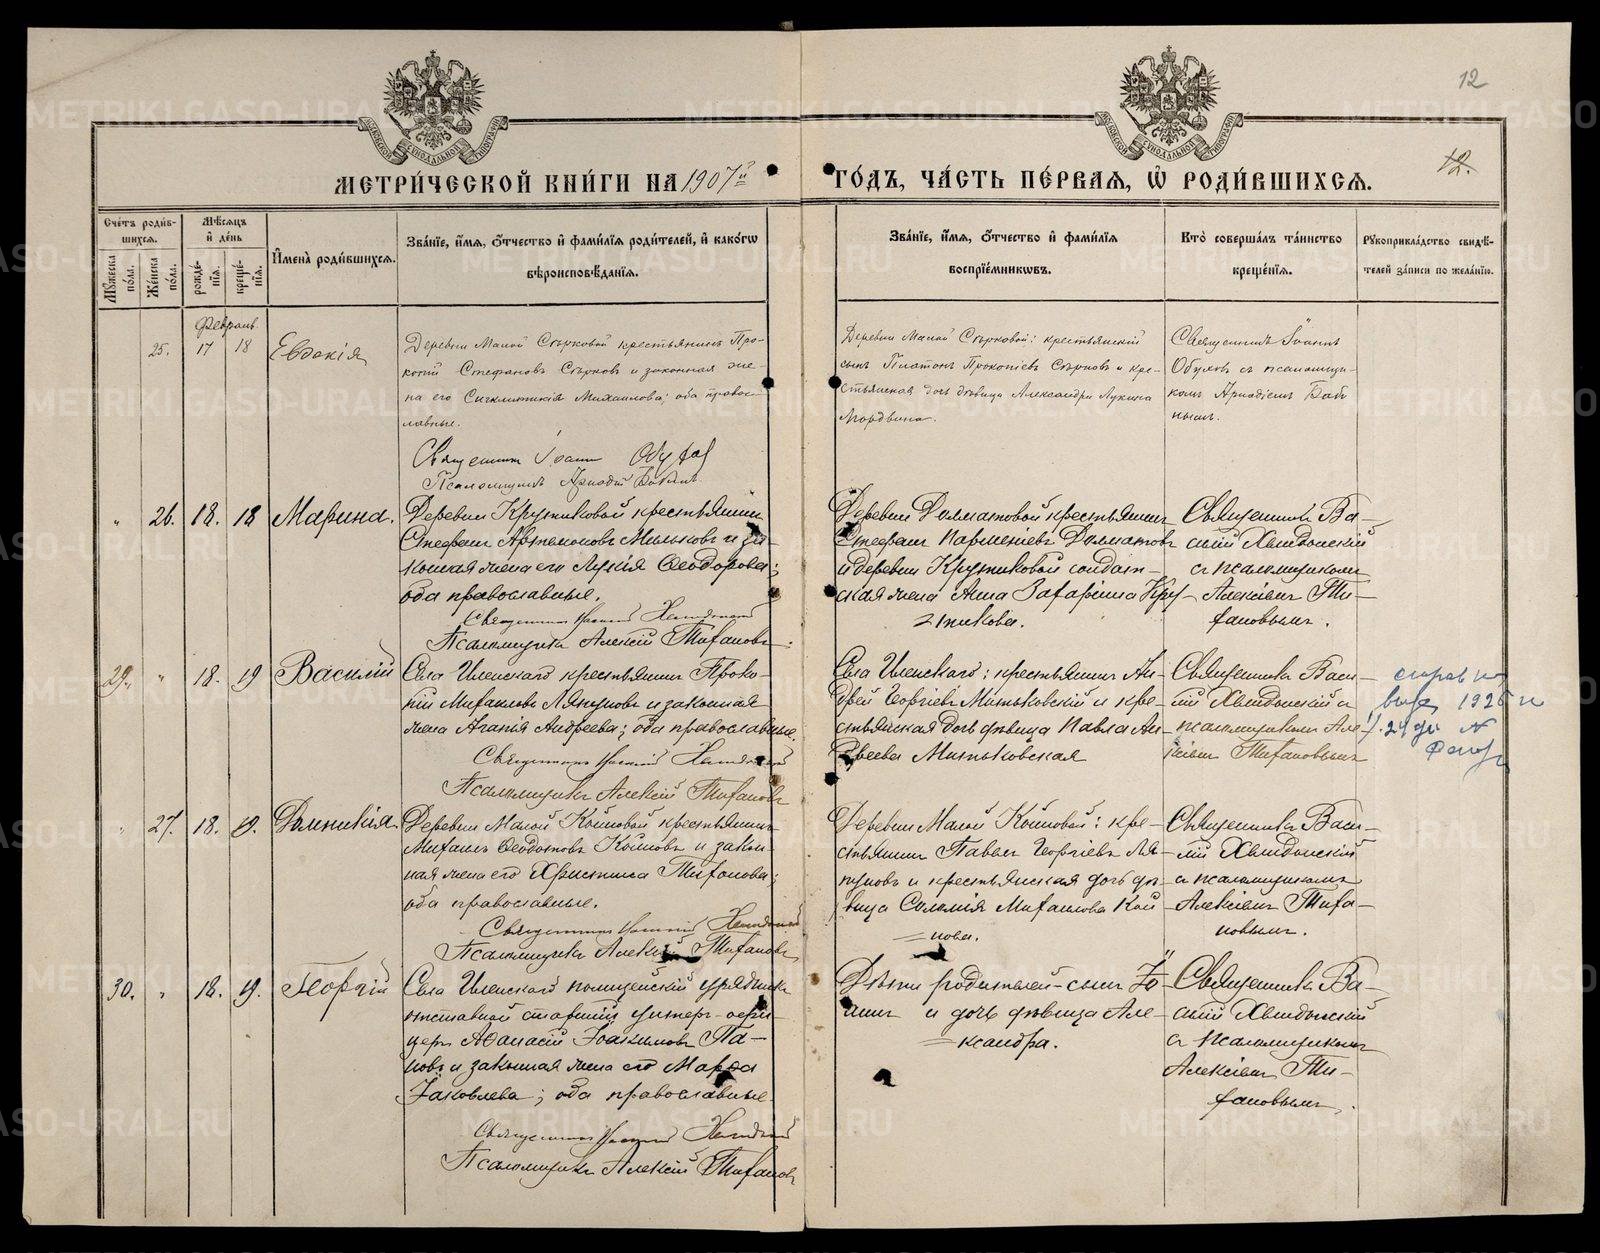 12
12.
МЕТРИ́ЧЕСКОЙ КНИ́ГИ НА 1907й ГО́ДЪ, ЧА́СТЬ ПЕ́РВАЯ, Ѡ҆ РОДИ́ВШИХСЯ.
Сче́тъ роди́в-
шихся.
Му́жеска по́ла.
Же́нска по́ла.
Мѣ́сяцъ
и҆ де́нь
рожде́-
нїя.
креще́-
нїя.
И҆мена̀ роди́вшихся.
Зва́нїе, и҆́мя, ѻ҆́тчество и҆ фами́лїя роди́телей, и҆ како́гѡ
вѣроисповѣ́данїя.
Зва́нїе, и҆́мя, ѻ҆́тчество и҆ фами́лїя
воспрїе́мникѡвъ.
Кто̀ соверша́лъ та́инство
креще́нїя.
Рꙋкоприкла́дство свидѣ́-
телей за́писи по жела́нїю.
Февраль
25. 17 18 Евдокія
Деревни Малой Сѣрковой крестьянинъ Про-
копій Стефановъ Сѣрковъ и законная же-
на его Синклитикія Михаилова; оба правос-
лавные.
Священник Іоанн
Псаломщикъ Аркадій
Деревни Малой Сѣрковой: крестьянскій
сынъ Платонъ Прокопіевъ Сѣрковъ и кре-
стьянская дочь дѣвица Александра Лукина
Мордвина.
Священникъ Іоаннъ
съ псаломщи-
комъ Аркадіемъ
26. 18. 18 Марина.
Деревни Кружиковой крестьянин
Стефанъ Артемоновъ и за-
конная жена его Лукія Ѳеодорова;
оба православные.
Священник
Псаломщикъ Алексій Тихановъ
Деревни Долматовой крестьянинъ
Стефанъ Парменіевъ Долматовъ
и деревни Кружиковой солдат-
ская жена Анна Захарина Кру-
жикова.
Священникъ Ва-
силій Хлыдынскій
съ псаломщикомъ
Алексіемъ Ти-
хановымъ.
29. 18. 19 Василій
Села Иленскаго крестьянинъ Проко-
пій Михаиловъ Ляпуновъ и законная
жена Агапія Андреева; оба православные.
Священник
Псаломщикъ Алексій Тихановъ
Села Иленскаго: крестьянинъ Ан-
дрей Георгіевъ Митьковскій и кре-
стьянская дочь дѣвица Павла Ан-
дреева Митьковская
Священникъ Васи-
лій Хлыдынскій и
псаломщикомъ Але-
ксіемъ Тихановымъ
27. 18. 19. Домникія
Деревни Малой Коиновой крестьянинъ
Михаилъ Ѳедотовъ Коиновъ и закон-
ная жена его Христина Тифонова;
оба православные.
Священник
Псаломщикъ Алексій Тихановъ
Деревни Малой Коиновой: кре-
стьянинъ Павелъ Георгіевъ Ля-
пуновъ и крестьянская дочь дѣ-
вица Соломія Михаилова Кои-
нова.
Священникъ Васи-
лій Хлыдынскій
съ псаломщикомъ
Алексіемъ Тиха-
новымъ.
30. 18. 19. Георгій
Села Иленскаго полицейскій урядникъ
отставной старшій унтеръ-офи-
церъ Аѳанасій Іоакимовъ По-
повъ и законная жена его Марѳа
Іаковлева; оба православные
Священник
Псаломщикъ Алексій Тихановъ
Дѣти родителей-сынъ Іо-
аннъ и дочь дѣвица Але-
ксандра.
Священникъ Ва-
силій Хлыдынскій
съ псаломщикомъ
Алексіемъ Ти-
хановымъ.
METRIKI.GASO-URAL.RU